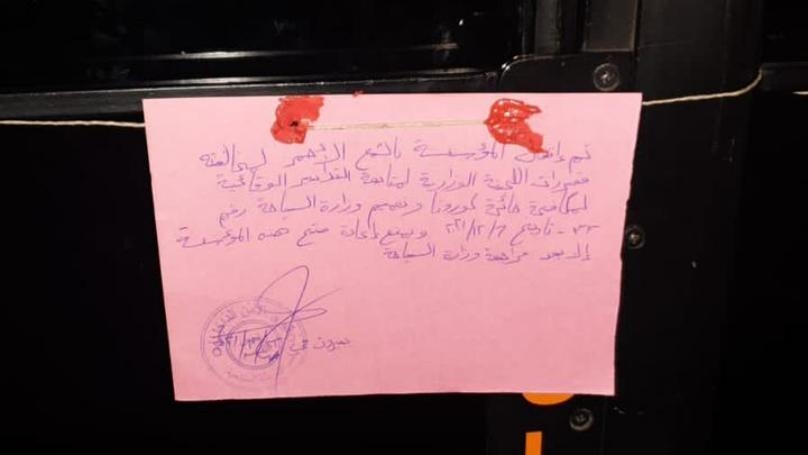 تم إقفال المؤسسة بالشمع الأحمر لمخالفته
مقررات اللجنة الوزارية لمتابعة التدابير الوقائية
لمكافحة جائحة كورونا وتعميم وزارة السياحة رقم
٢٢ - تاريخ ٢٠٢١/١٢/٦ ويمنع إعادة فتح هذه المؤسسة
إلا بعد مراجعة وزارة السياحة
بيروت في